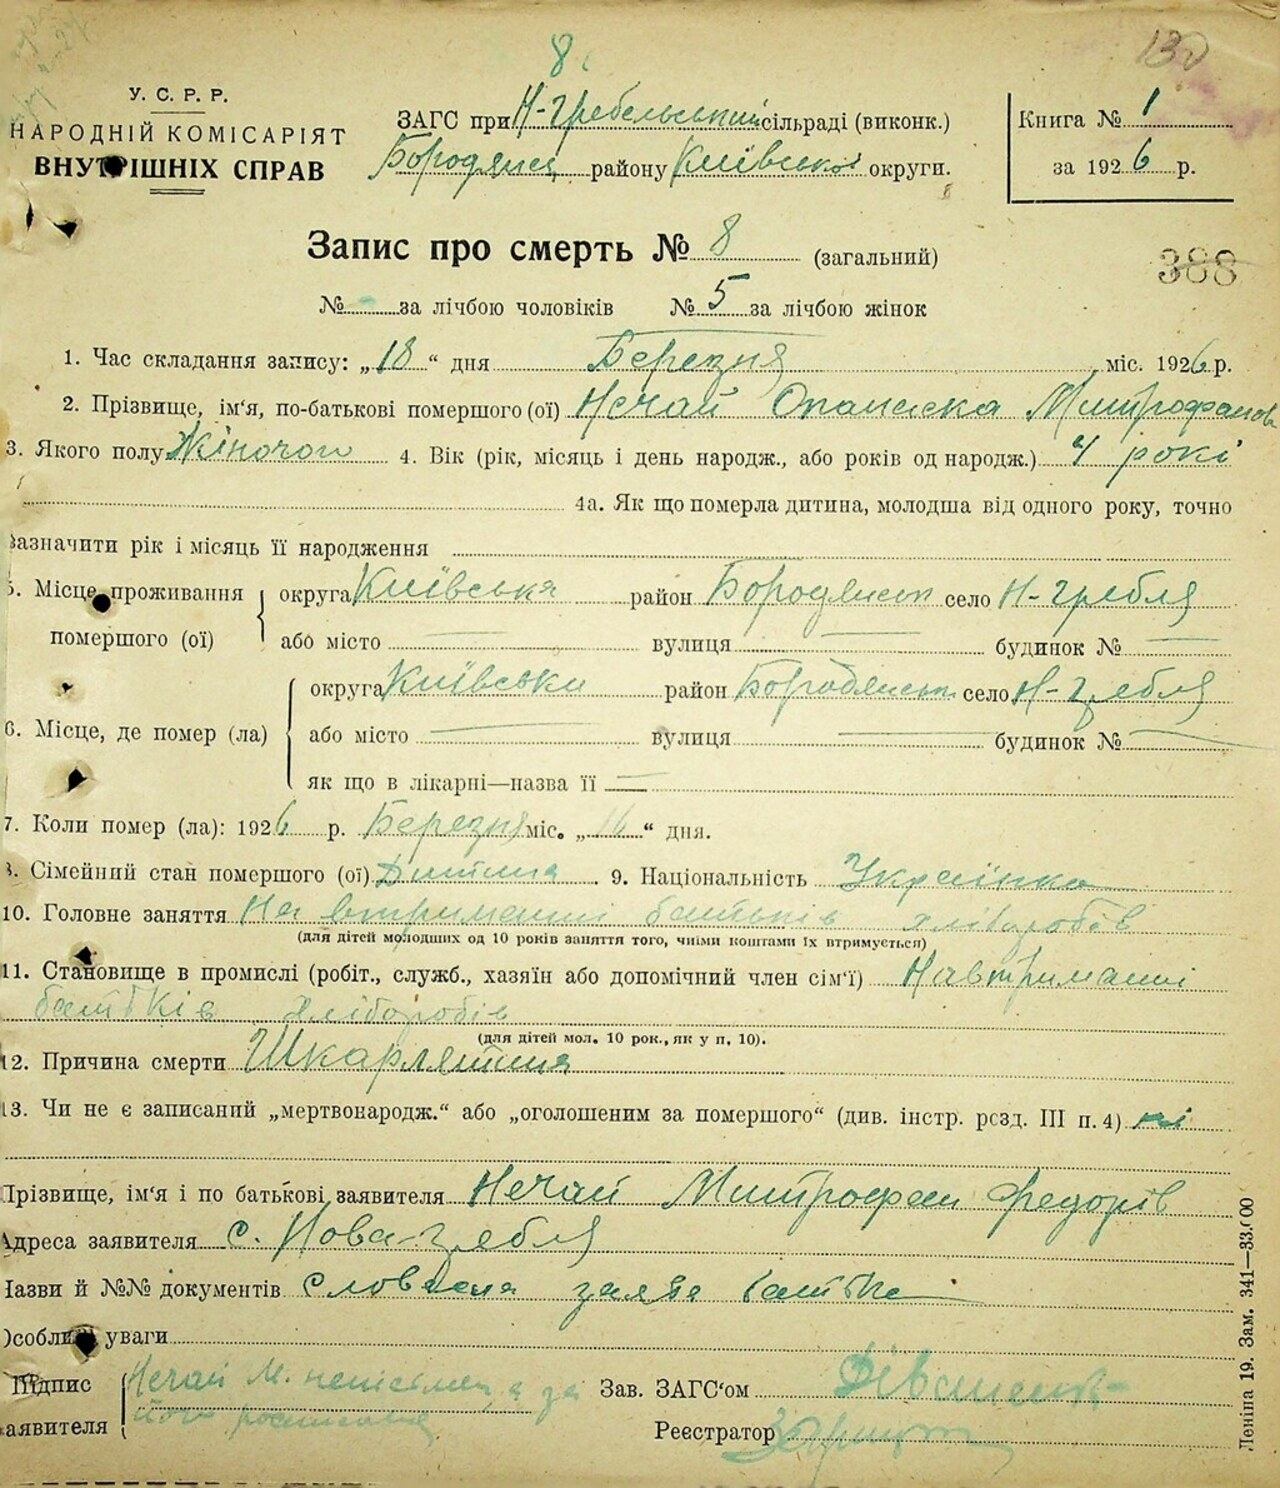 8
130
У. С. Р. Р.
НАРОДНІЙ КОМІСАРІЯТ
ВНУТРІШНІХ СПРАВ
ЗАГС при Н-Гребельський сільраді (виконк.)
Бородянськ району Київської округи.
Книга № 1
за 1926 р.
Запис про смерть № 8 (загальний)
388
№ за лічбою чоловіків № 5 за лічбою жінок
1. Час складання запису: „18“ дня Березня міс. 1926 р.
2. Прізвище, ім‘я, по-батькові помершого (ої) Нечай Опанаска Митрофанов
3. Якого полу Жіночої 4. Вік (рік, місяць і день народж., або років од народж.) 4 рокі
4а. Як що померла дитина, молодша від одного року, точно
зазначити рік і місяць її народження
5. Місце проживання помершого (ої) округа Київська район Бородянськ село Н-Гребля
або місто вулиця будинок №
6. Місце, де помер (ла) округа Київська район Бородянськ село Н-Гребля
або місто вулиця будинок №
як що в лікарні—назва її
7. Коли помер (ла): 1926 р. Березня міс. „16“ дня.
8. Сімейний стан помершого (ої) Дитина 9. Національність Українка
10. Головне заняття На втриманні батьків хліборобів
(для дітей молодших од 10 років заняття того, чиїми коштами їх втримується)
11. Становище в промислі (робіт., служб., хазяїн або допомічний член сім‘ї) На втриманні
батьків хліборобів
(для дітей мол. 10 рок., як у п. 10).
12. Причина смерти Шкарлятина
13. Чи не є записаний „мертвонародж.“ або „оголошеним за помершого“ (див. інстр. розд. III п. 4) ні
Прізвище, ім‘я і по батькові заявителя Нечай Митрофан Федорів
Адреса заявителя с. Нова-Гребля
Назви й №№ документів словесна заява батька
Особливі уваги
Підпис заявителя Нечай М. неписьмен, а за
його росписався
Зав. ЗАГС‘ом
Реєстратор
Леніна 19. Зам. 341—33.000